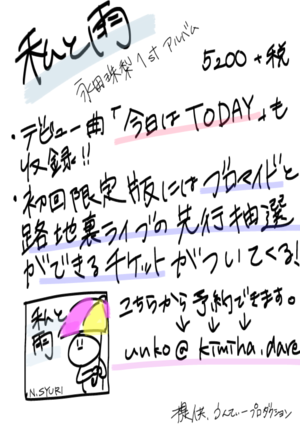 私と雨
永田珠梨 1stアルバム
5200+税
・デビュー曲「今日はTODAY」も
収録!!
・初回限定版にはブロマイドと
路地裏ライブの先行抽選
ができるチケットがついてくる!
こちらから予約できます。
↓ ↓ ↓
unko@kimiha.dare
私と
雨
N.SYURI
提供、うんでぃープロダクション